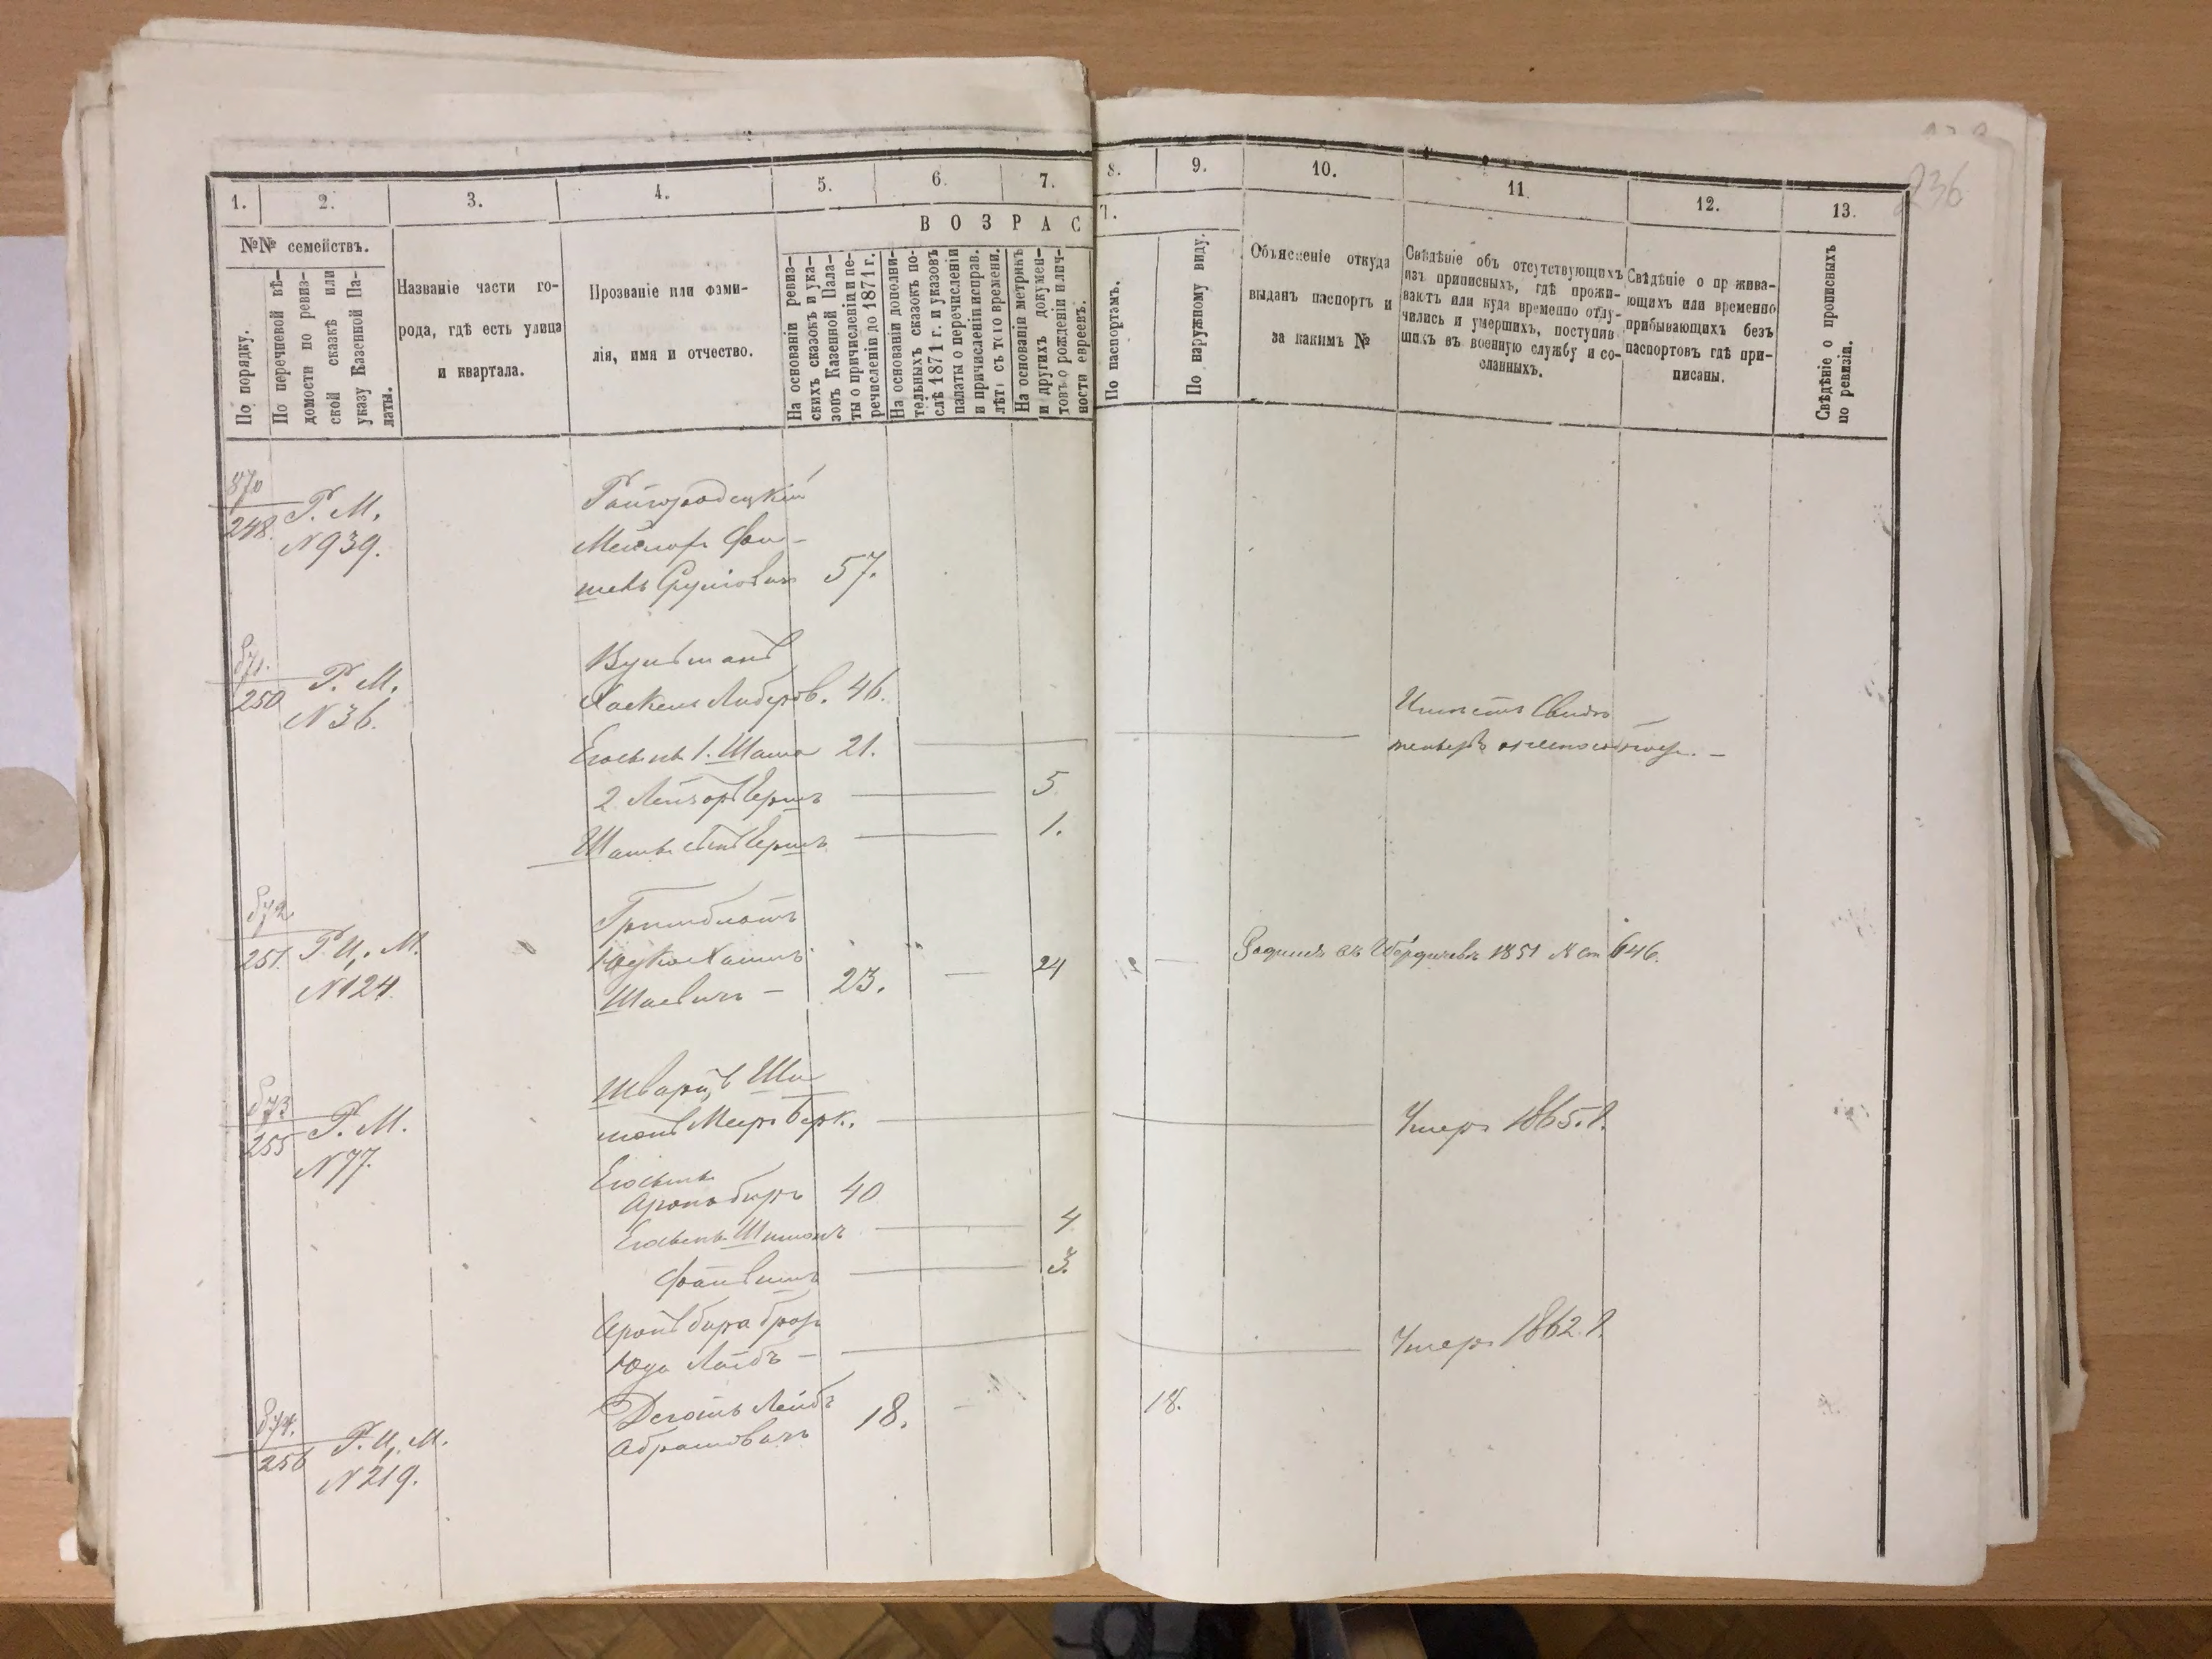 236
1. 2. 3. 4. 5. 6. 7. 8. 9. 10. 11. 12. 13.
В О З Р А С Т.
№№ семействъ.
По порядку.
По перечневой вѣ-
домости по ревиз-
ской сказкѣ или
указу Казенной Па-
латы.
Названіе части го-
рода, гдѣ есть улица
и квартала.
Прозваніе или фами-
лія, имя и отчество.
На основаніи ревиз-
скихъ сказокъ и ука-
зовъ Казенной Пала-
ты о причисленіи и пе-
речисленіи до 1871 г.
На основаніи дополни-
тельныхъ сказокъ по-
слѣ 1871 г. и указовъ
палаты о перечисленіи
и причисленіи исправ.
лѣтъ съ того времени.
На основаніи метрикъ
и другихъ докумен-
товъ о рожденіи и лич-
ности евреевъ.
По паспортамъ.
По наружному виду.
Объясненіе откуда
выданъ паспортъ и
за какимъ №
Свѣдѣніе объ отсутствующихъ
изъ приписныхъ, гдѣ прожи-
ваютъ или куда временно отлу-
чились и умершихъ, поступив-
шихъ въ военную службу и со-
сланныхъ.
Свѣдѣніе о прожива-
ющихъ или временно
прибывающихъ безъ
паспортовъ гдѣ при-
писаны.
Свѣдѣніе о прописныхъ
по ревизіи.
870
248. Р. М.
N 939.
Райгородецкій
Фи-
шель Сруліовичъ 57.
871.
250 Р. М.
N 36.
Вульманъ
Хаскель Либеров. 46.
Его сынъ 1. Шама 21.
2. Лейзоръ Гершъ 5
1.
872
251. Р. И. М.
N 124.
Гринблатъ
Юдко Хаимъ
Шаевичъ — 23. — 24
1851 646.
873
255 Р. М.
N 77.
Шварцъ Ши
монъ Меер Берк. Умеръ 1865. г.
Его сынъ
Аронъ Беръ 40
Его сынъ Шимонъ 4
Файвишъ 3.
Аронъ Бера братъ
Юда Лейбъ — Умеръ 1862. г.
874.
256 Р. И. М.
N 219.
Деготь Лейбъ
Абрамовичъ 18. — 18.